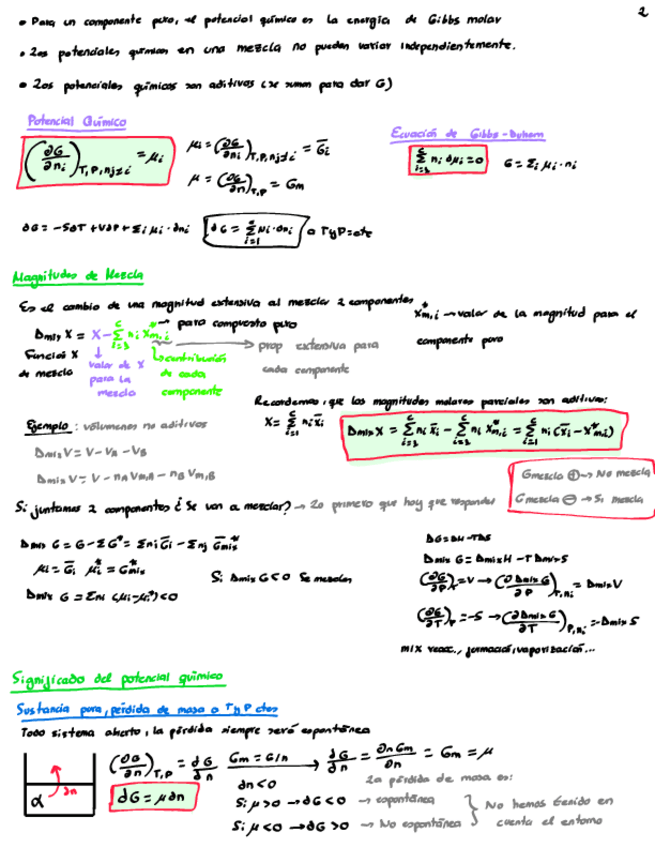 2
• Para un componente puro, el potencial químico es la energía de Gibbs molar
• Los potenciales químicos en una mezcla no pueden variar independientemente.
• Los potenciales químicos son aditivos (se suman para dar G)
Potencial Químico
(∂G/∂ni)T,P,nj≠i = μi
μi = (∂G/∂ni)T,P,nj≠i = G̅i
μ = (∂G/∂n)T,P = Gm
Ecuación de Gibbs-Duhem
Σ(i=1, c) ni dμi = 0 G = Σi μi · ni
dG = -SdT + VdP + Σi μi · dni dG = Σ(i=1, c) μi · dni a T y P = cte
Magnitudes de Mezcla
Es el cambio de una magnitud extensiva al mezclar 2 componentes
X*m,i → valor de la magnitud para el componente puro
Δmix X = X - Σ(i=1, c) ni X*m,i → para compuesto puro
→ prop extensiva para cada componente
Función X de mezcla
↓ valor de X para la mezcla
↳ contribución de cada componente
Recordemos, que las magnitudes molares parciales son aditivas:
X = Σ(i=1, c) ni x̅i
Δmix X = Σ(i=1, c) ni x̅i - Σ(i=1, c) ni X*m,i = Σ(i=1, c) ni (x̅i - X*m,i)
Ejemplo: volúmenes no aditivos
Δmix V = V - VA - VB
Δmix V = V - nA Vm,A - nB Vm,B
Gmezcla ⊕ → No mezcla
Gmezcla ⊖ → Si mezcla
Si juntamos 2 componentes ¿Se van a mezclar? → Lo primero que hay que responder
Δmix G = G - ΣG* = Σni G̅i - Σnj G̅*mix
μi = G̅i μi* = G*mix
Si Δmix G < 0 Se mezclan
Δmix G = Σni (μi - μi*) < 0
ΔG = ΔH - TΔS
Δmix G = Δmix H - TΔmix S
(∂G/∂P)T = V → (∂Δmix G/∂P)T,ni = Δmix V
(∂G/∂T)P = -S → (∂Δmix G/∂T)P,ni = -Δmix S
mix reacc., formación, vaporización...
Significado del potencial químico
Sustancia pura, pérdida de masa a T y P ctes
Todo sistema abierto, la pérdida siempre será espontánea
α dn
(∂G/∂n)T,P = dG/dn Gm = G/n → dG/dn = ∂nGm/∂n = Gm = μ
dG = μdn
dn < 0
La pérdida de masa es:
Si μ > 0 → dG < 0 → espontánea
Si μ < 0 → dG > 0 → No espontánea
No hemos tenido en cuenta el entorno